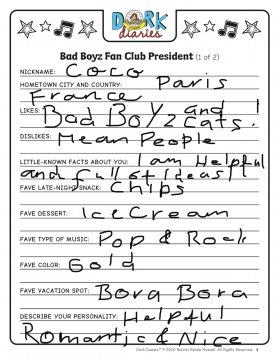 DORK
diaries
Bad Boyz Fan Club President (1 of 2)
NICKNAME: Coco
HOMETOWN CITY AND COUNTRY: Paris
France
LIKES: Bad Boyz and cats.
DISLIKES: Mean People
LITTLE-KNOWN FACTS ABOUT YOU: I am Helpful
and full of Ideas!
FAVE LATE-NIGHT SNACK: Chips
FAVE DESSERT: Ice Cream
FAVE TYPE OF MUSIC: Pop & Rock
FAVE COLOR: Gold
FAVE VACATION SPOT: Bora Bora
DESCRIBE YOUR PERSONALITY: Helpful
Romantic & Nice
Dork Diaries™ © 2020 Rachel Renée Russell. All Rights Reserved.